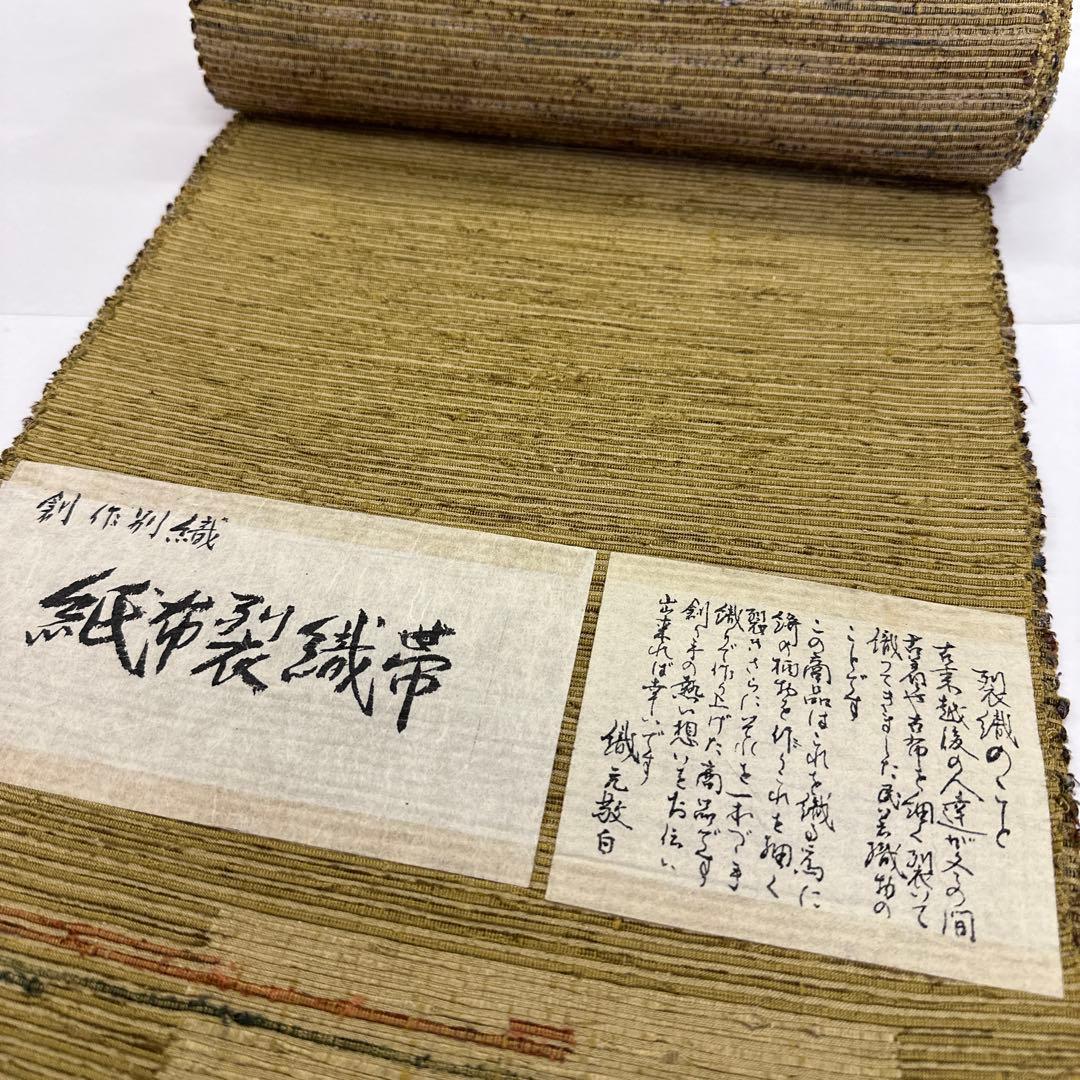 創作別織
紙布裂織帯
裂織のこと
古来越後の人達が冬の間
古着や古布を細く裂いて
織ってきました民芸織物の
ことです
この商品はこれを織る為に
絣の柄物を作りこれを細く
裂きさらにそれを一本づゝき
織りで作り上げた商品です
創り手の熱い想いをお伝い
出来れば幸いです
織元敬白